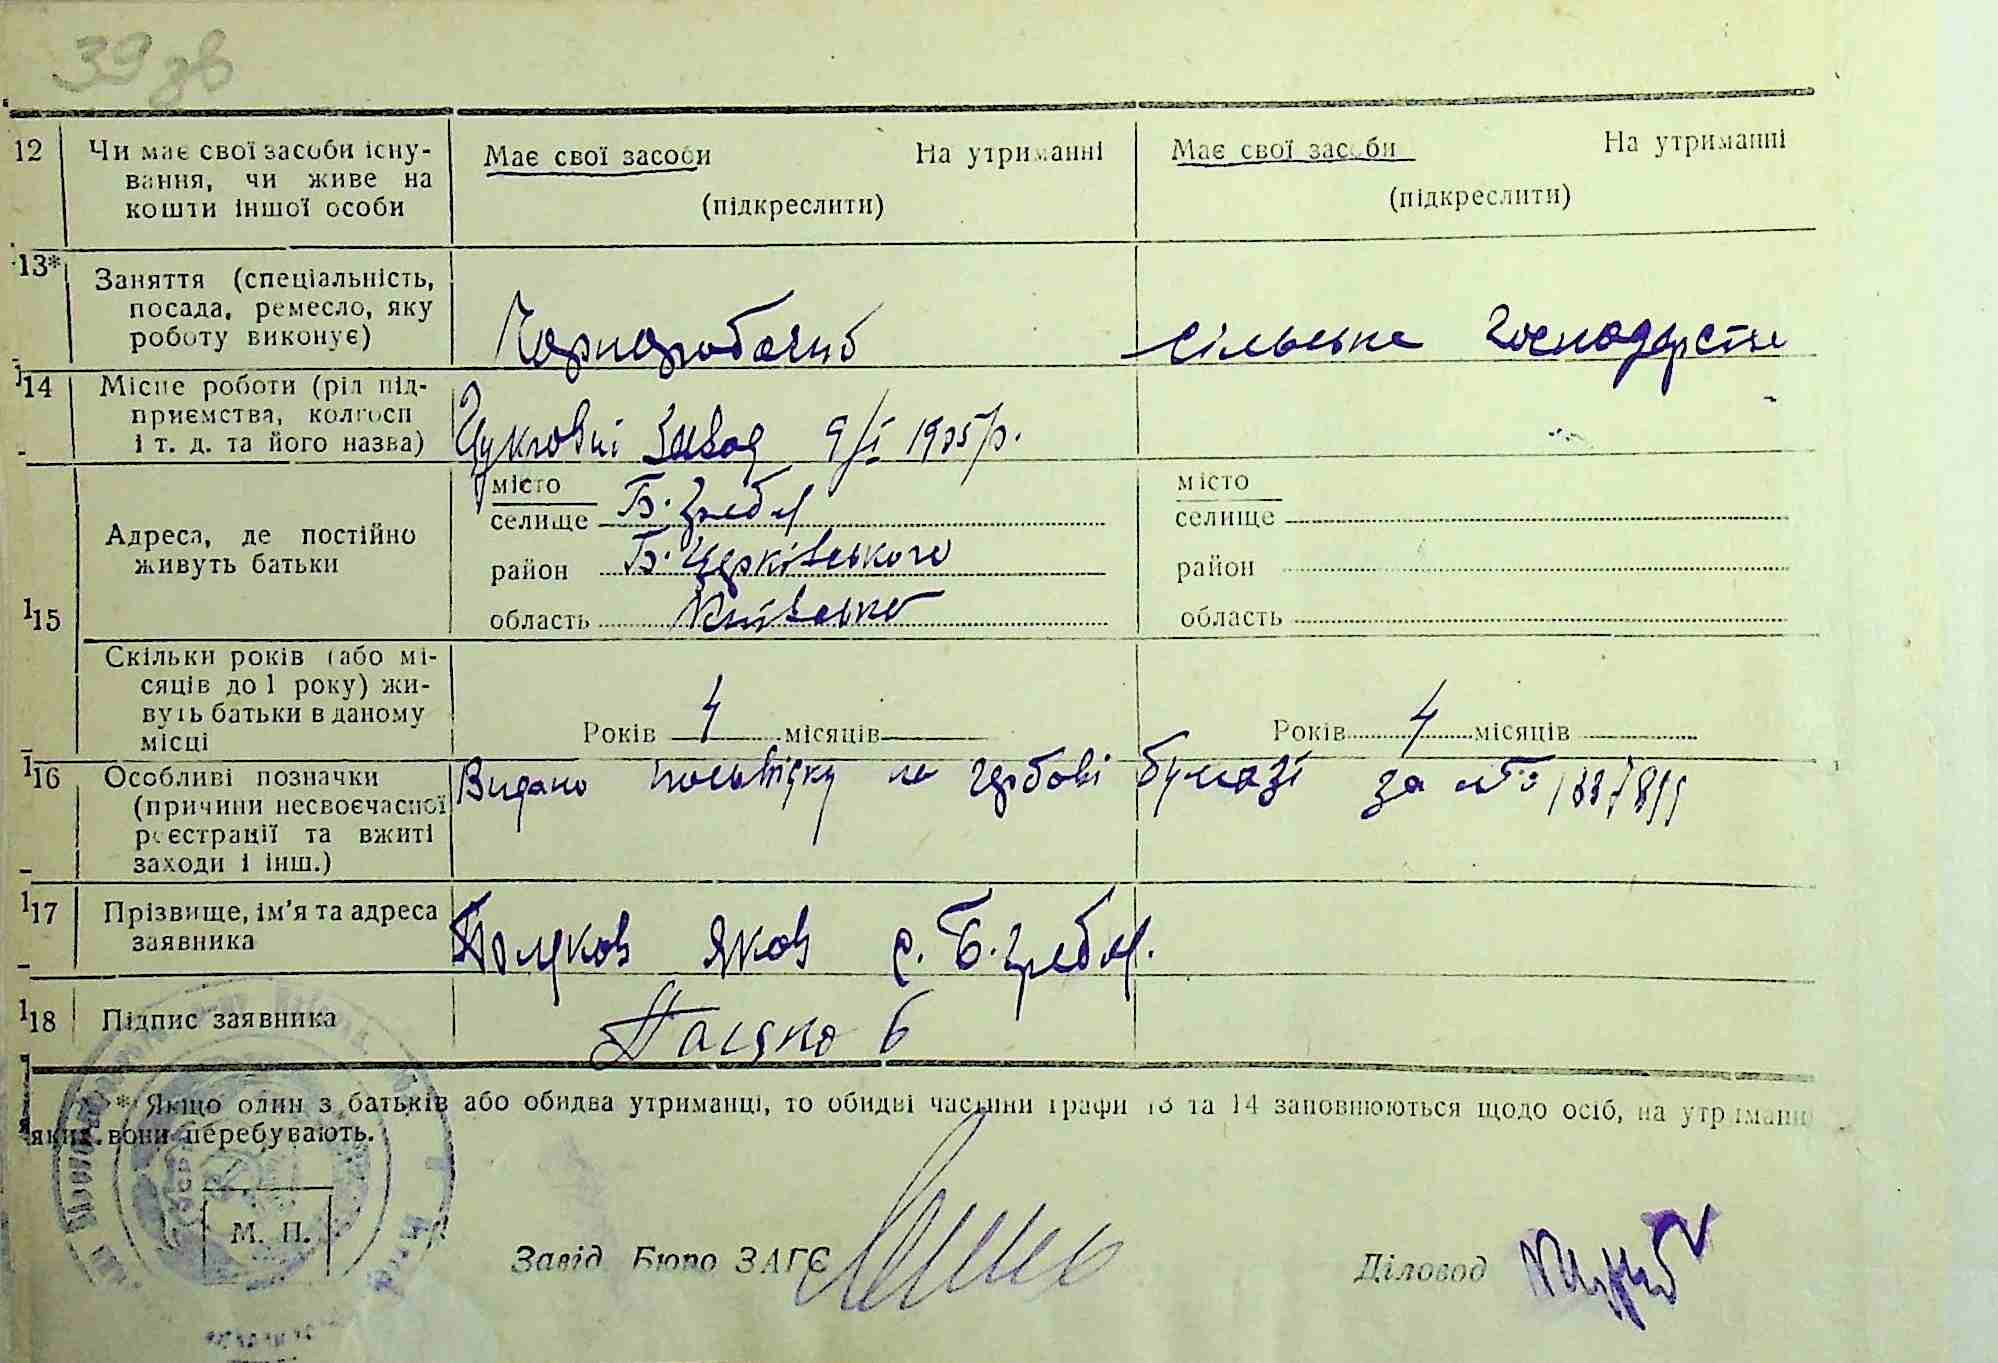 39 зв
12 Чи має свої засоби існу-
вання, чи живе на
кошти іншої особи
Має свої засоби На утриманні
(підкреслити)
Має свої засоби На утриманні
(підкреслити)
13* Заняття (спеціальність,
посада, ремесло, яку
роботу виконує)
Чорноробочий
сільське господарство
14 Місце роботи (рід під-
приємства, колгосп
і т. д. та його назва)
Цукровий завод 9/I 1935/р.
15 Адреса, де постійно
живуть батьки
місто
селище Б. Гребля
район Б. Церківського
область Київсько
місто
селище
район
область
Скільки років (або мі-
сяців до 1 року) жи-
вуть батьки в даному
місці
Років 4 місяців
Років 4 місяців
16 Особливі позначки
(причини несвоєчасної
реєстрації та вжиті
заходи і інш.)
Видано на гербові бумазі за №
17 Прізвище, ім'я та адреса
заявника
Поляков Яков с. Б. Гребля.
18 Підпис заявника
* Якщо один з батьків або обидва утриманці, то обидві частини графи 13 та 14 заповнюються щодо осіб, на утриманні
яких вони перебувають.
М. П.
Завід. Бюро ЗАГС
Діловод